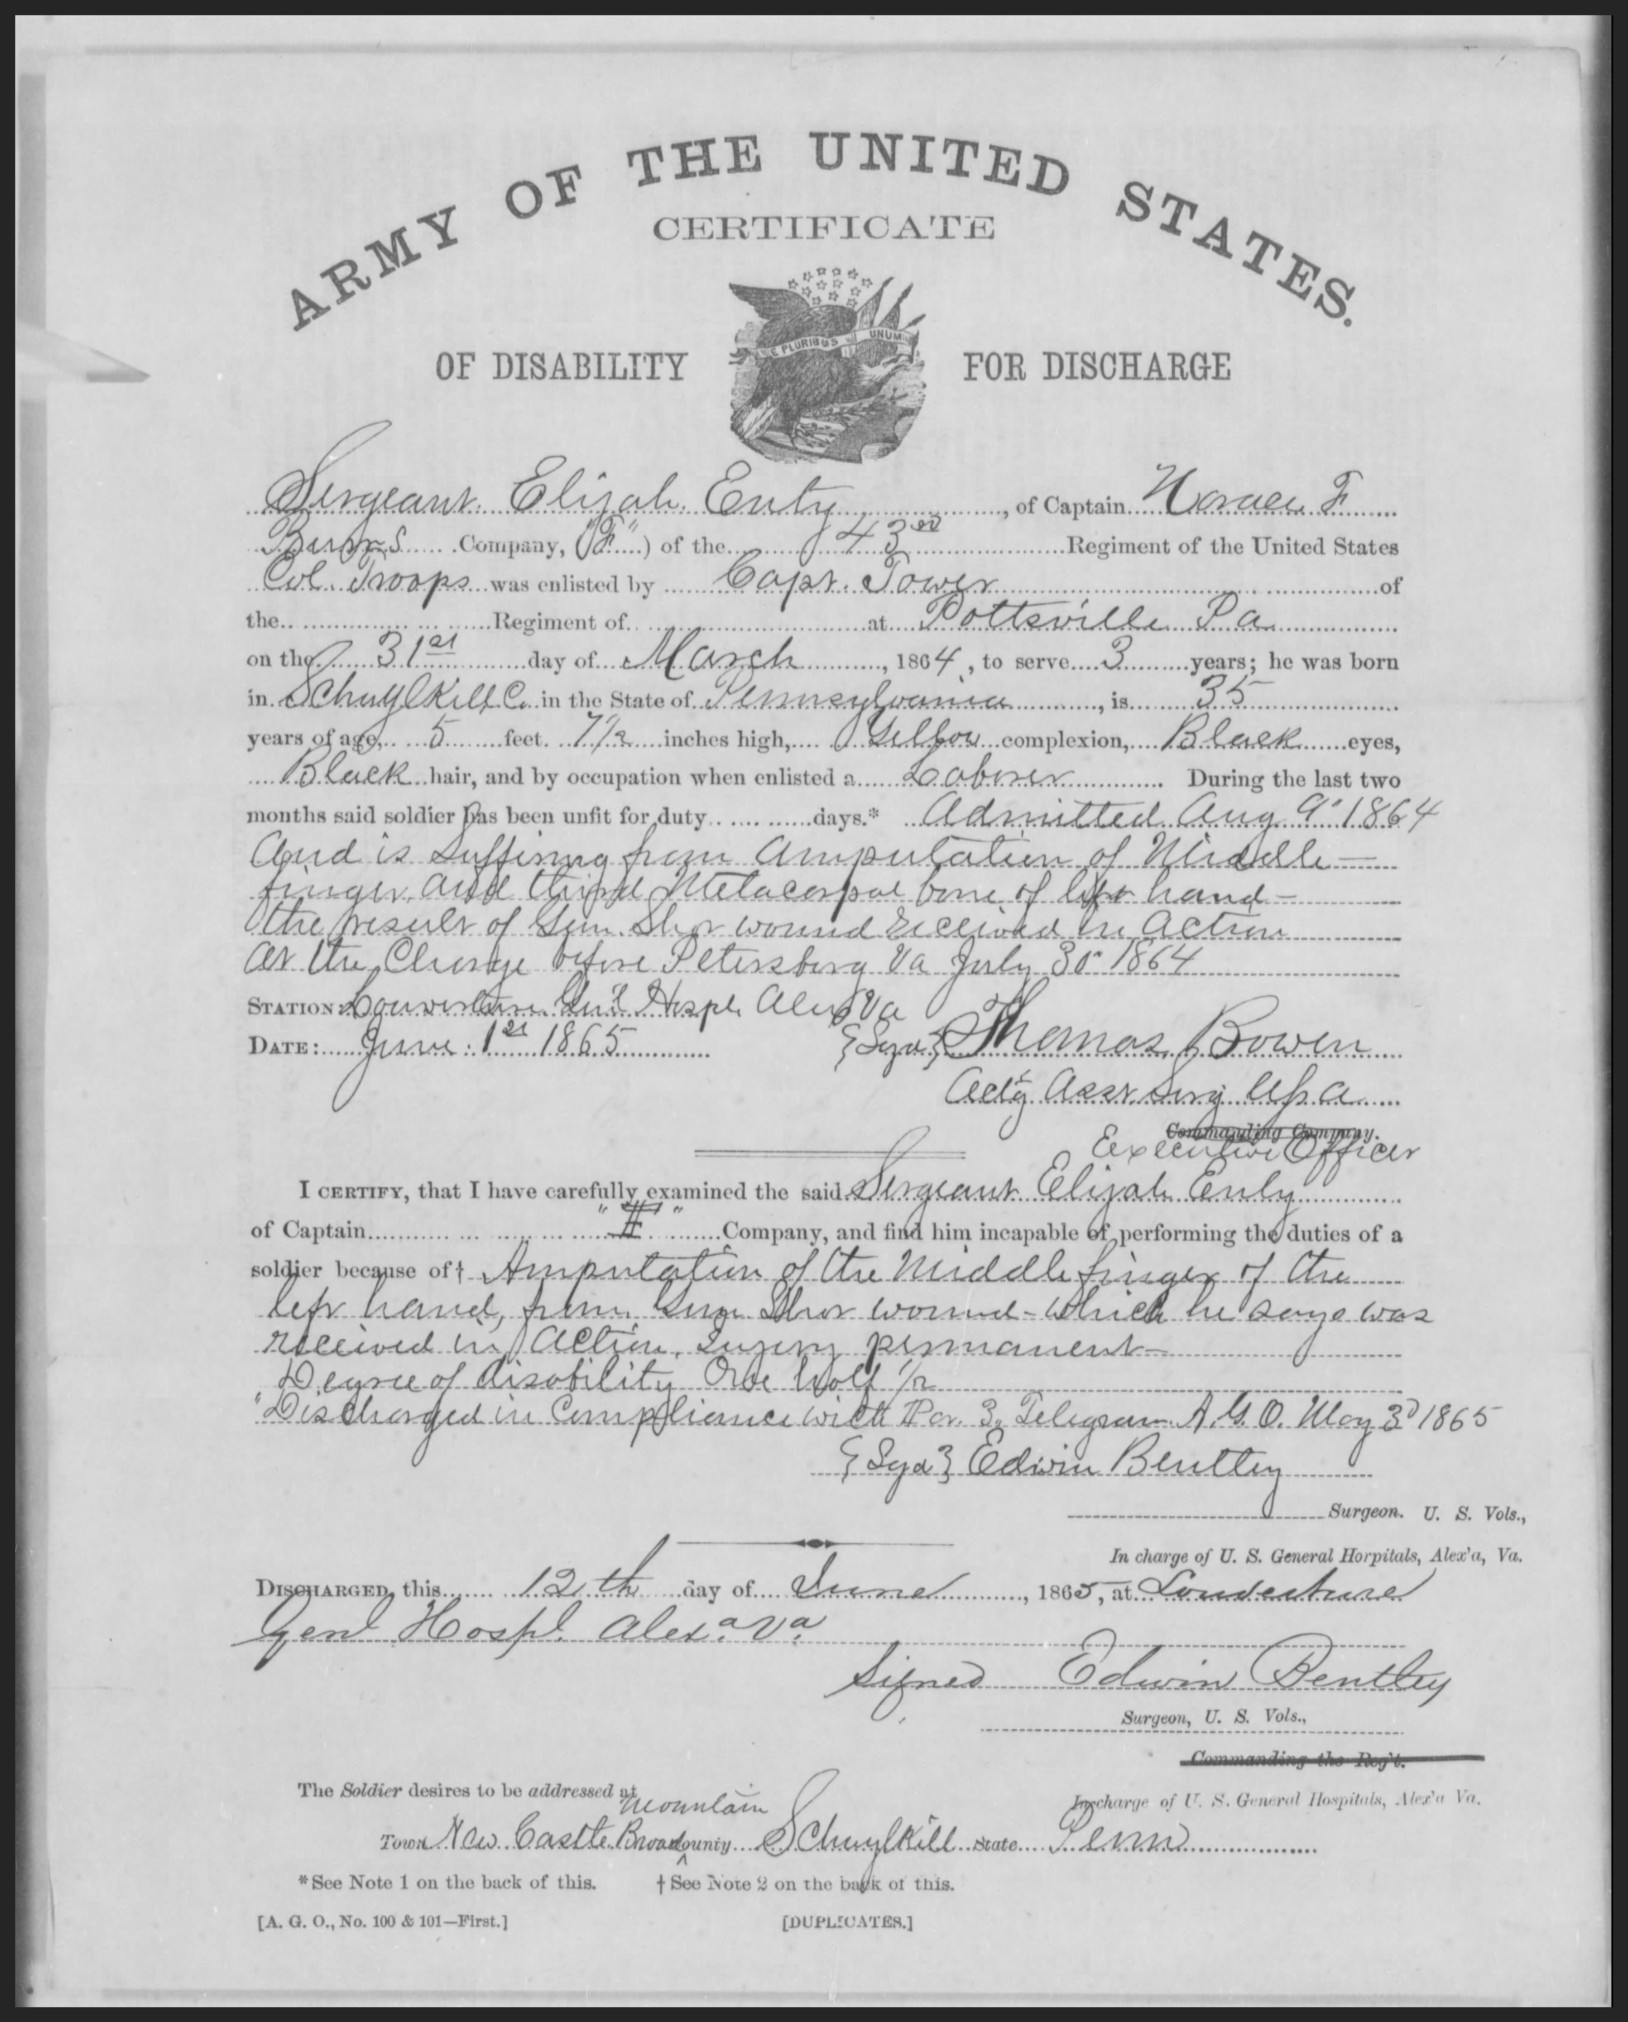 ARMY OF THE UNITED STATES.
CERTIFICATE
E PLURIBUS UNUM
OF DISABILITY FOR DISCHARGE
Sergeant Elijah Enty, of Captain Horace F
Burns Company, ("F") of the 43rd Regiment of the United States
Col. Troops was enlisted by Capt. Tower of
the Regiment of at Pottsville Pa
on the 31st day of March, 1864, to serve 3 years; he was born
in Schuylkill Co. in the State of Pennsylvania, is 35
years of age, 5 feet 7 1/2 inches high, Yellow complexion, Black eyes,
Black hair, and by occupation when enlisted a Laborer. During the last two
months said soldier has been unfit for duty days.* Admitted Aug 9" 1864
And is suffering from Amputation of Middle
finger and third Metacarpal bone of left hand -
the result of Gun Shot wound received in Action
at the Charge before Petersburg Va July 30" 1864
STATION: Louverture Gen'l Hospl. Alex Va
DATE: June 1st 1865 {Sgd} Thomas Bowen
Act'g Asst Surg USA
Commanding Company.
Executive Officer
I CERTIFY, that I have carefully examined the said Sergeant Elijah Enty
of Captain "F" Company, and find him incapable of performing the duties of a
soldier because of† Amputation of the Middle finger of the
left hand, from Gun Shot wound - which he says was
received in Action. Injury permanent -
Degree of disability One half 1/2
"Discharged in Compliance with Par. 3, Telegram A.G.O. May 3d 1865
{Sgd} Edwin Bentley
Surgeon. U. S. Vols.,
In charge of U. S. General Horpitals, Alex'a, Va.
DISCHARGED, this 12th day of June, 1865, at Louverture
Genl Hospl. Alexa. Va.
Signed Edwin Bentley
Surgeon, U. S. Vols.,
Commanding the Reg't.
The Soldier desires to be addressed at In charge of U. S. General Hospitals, Alex'a Va.
Mountain
Town New Castle Broad County Schuylkill State Penn
*See Note 1 on the back of this. †See Note 2 on the back of this.
[A. G. O., No. 100 & 101—First.] [DUPLICATES.]